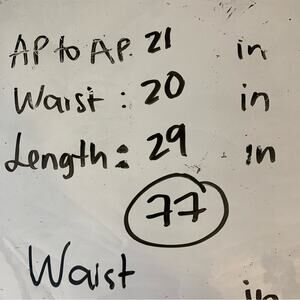 AP to AP. 21 in
Waist : 20 in
Length : 29 in
77
Waist
in